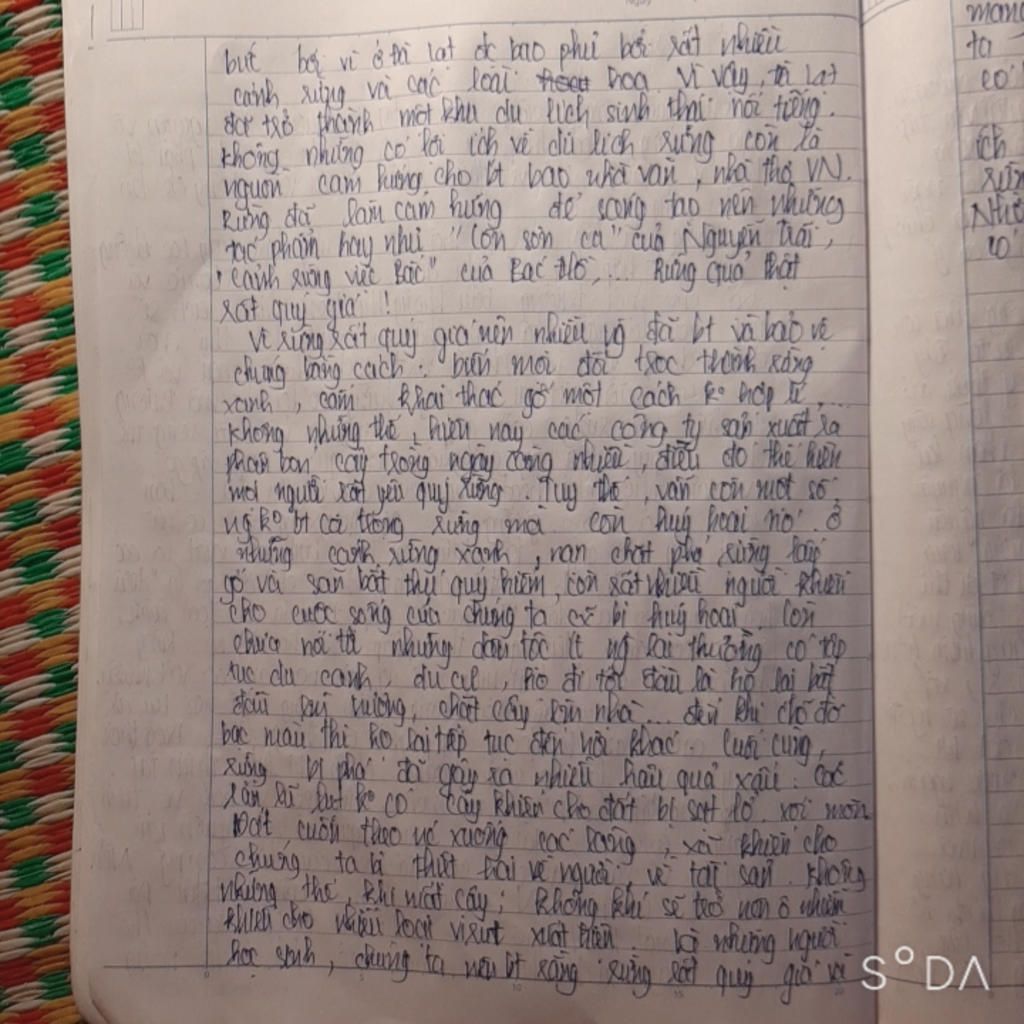 biết bởi vì ở Đà Lạt đc bao phủ bởi rất nhiều
cánh rừng và các loài hoa. Vì vậy, Đà Lạt
đã trở thành một khu du lịch sinh thái nổi tiếng.
Không những có lợi ích về du lịch rừng còn là
nguồn cảm hứng cho bt bao nhà văn, nhà thơ VN.
Rừng đã làm cảm hứng để sáng tạo nên những
tác phẩm hay như "Côn sơn ca" của Nguyễn Trãi,
"Cảnh rừng Việt Bắc" của Bác Hồ,... Rừng quả thật
rất quý giá!
Vì rừng rất quý giá nên nhiều ng đã bt và bảo vệ
chúng bằng cách: biến mọi đồi trọc thành rừng
xanh, cấm khai thác gỗ một cách ko hợp lí,...
Không những thế, hiện nay các công ty sản xuất ra
phân bón cây trồng ngày càng nhiều, điều đó thể hiện
mọi người rất yêu quý rừng. Tuy thế, vẫn còn một số
ng ko bt coi trọng rừng mà còn huỷ hoại nó. Ở
những cánh rừng xanh, nạn chặt phá rừng lấy
gỗ và săn bắt thú quý hiếm, còn rất nhiều người khiến
cho cuộc sống của chúng ta cứ bị huỷ hoại. Còn
chưa nói tới những dân tộc ít ng lại thường có tập
tục du canh du cư, họ đi tới đâu là họ lại bắt
đầu làm nương, chặt cây làm nhà... đến khi chỗ đó
bạc màu thì họ lại tiếp tục đến nơi khác. Cuối cùng,
rừng bị phá đã gây ra nhiều hậu quả xấu: Các
lần lũ lụt ko có cây khiến cho đất bị sạt lở, xói mòn
Đất cuốn theo nc xuống các làng, xã khiến cho
chúng ta bị thiệt hại về người, về tài sản. Không
những thế, khi mất cây; không khí sẽ trở nên ô nhiễm
khiến cho nhiều loại virut xuất hiện. Là những người
học sinh, chúng ta nên bt rằng rừng rất quý giá và
mang
ta
có
ích
rừn
Như
có
SODA